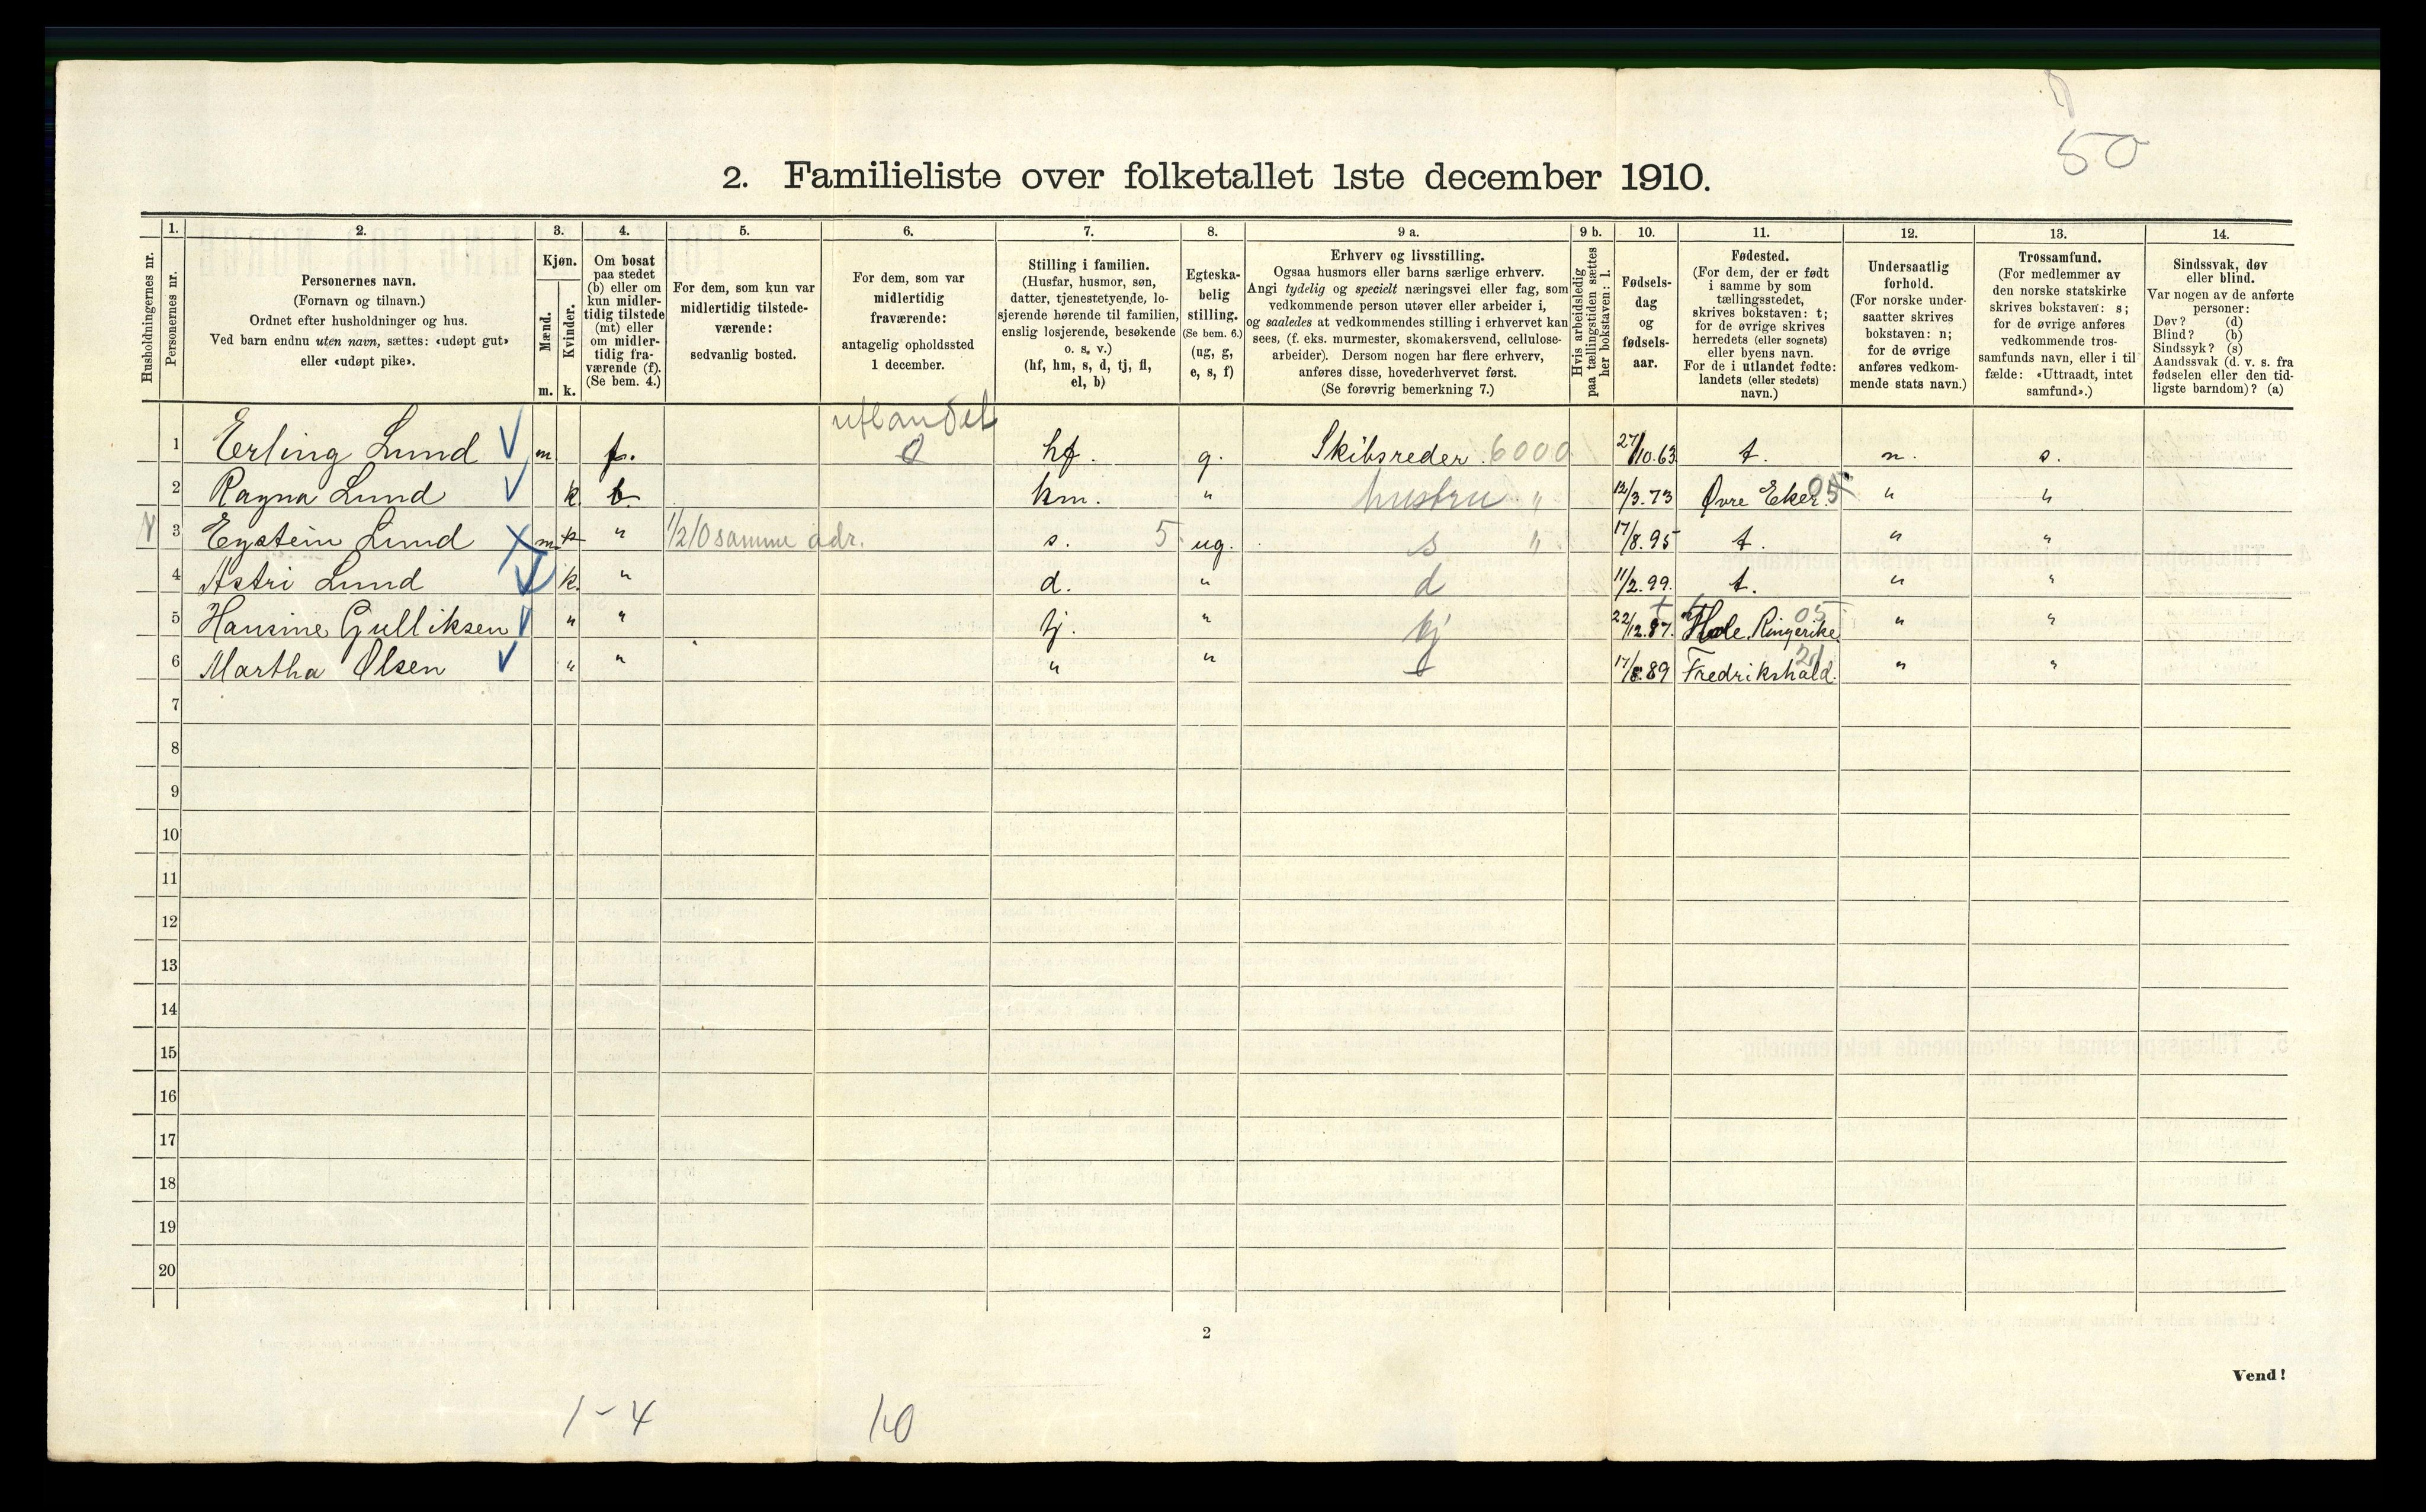 50
2. Familieliste over folketallet 1ste december 1910.
Husholdningernes nr.
1.
Personernes nr.
2.
Personernes navn.
(Fornavn og tilnavn.)
Ordnet efter husholdninger og hus.
Ved barn endnu uten navn, sættes: «udøpt gut»
eller «udøpt pike».
3.
Kjøn.
Mænd.
m.
Kvinder.
k.
4.
Om bosat
paa stedet
(b) eller om
kun midler-
tidig tilstede
(mt) eller
om midler-
tidig fra-
værende (f).
(Se bem. 4.)
5.
For dem, som kun var
midlertidig tilstede-
værende:
sedvanlig bosted.
6.
For dem, som var
midlertidig
fraværende:
antagelig opholdssted
1 december.
7.
Stilling i familien.
(Husfar, husmor, søn,
datter, tjenestetyende, lo-
sjerende hørende til familien,
enslig losjerende, besøkende
o. s. v.)
(hf, hm, s, d, tj, fl,
el, b)
8.
Egteska-
belig
stilling.
(Se bem. 6.)
(ug, g,
e, s, f)
9 a.
Erhverv og livsstilling.
Ogsaa husmors eller barns særlige erhverv.
Angi tydelig og specielt næringsvei eller fag, som
vedkommende person utøver eller arbeider i,
og saaledes at vedkommendes stilling i erhvervet kan
sees, (f. eks. murmester, skomakersvend, cellulose-
arbeider). Dersom nogen har flere erhverv,
anføres disse, hovederhvervet først.
(Se forøvrig bemerkning 7.)
9 b.
Hvis arbeidsledig
paa tællingstiden sættes
her bokstaven: l.
10.
Fødsels-
dag
og
fødsels-
aar.
11.
Fødested.
(For dem, der er født
i samme by som
tællingsstedet,
skrives bokstaven: t;
for de øvrige skrives
herredets (eller sognets)
eller byens navn.
For de i utlandet fødte:
landets (eller stedets)
navn.)
12.
Undersaatlig
forhold.
(For norske under-
saatter skrives
bokstaven: n;
for de øvrige
anføres vedkom-
mende stats navn.)
13.
Trossamfund.
(For medlemmer av
den norske statskirke
skrives bokstaven: s;
for de øvrige anføres
vedkommende tros-
samfunds navn, eller i til-
fælde: «Uttraadt, intet
samfund».)
14.
Sindssvak, døv
eller blind.
Var nogen av de anførte
personer:
Døv? (d)
Blind? (b)
Sindssyk? (s)
Aandssvak (d. v. s. fra
fødselen eller den tid-
ligste barndom)? (a)
utlandet
1 Erling Lund m. f. 0 hf. g. Skibsreder 6000 27/10.63 t. n. s.
2 Ragna Lund k. b. hm. " hustru " 12/3.73 Øvre Eker. 05 " "
3 Eystein Lund m. k " 1/2 10 samme adr. s. 5 ug. s " 17/8.95 t. " "
4 Astri Lund k. " d. " d 11/2.99. t. " "
5 Hansine Gulliksen " " tj. " tj 22/12.87. Hole. Ringerike. 05 " "
6 Martha Olsen " " " " 17/8.89 Fredrikshald. 21 " "
7
8
9
10
11
12
13
14
15
16
17
18
19
20
2
Vend!
1-4
10